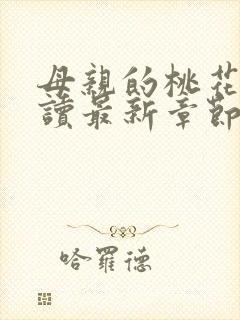 母親的桃花
讀最新章節
哈羅德